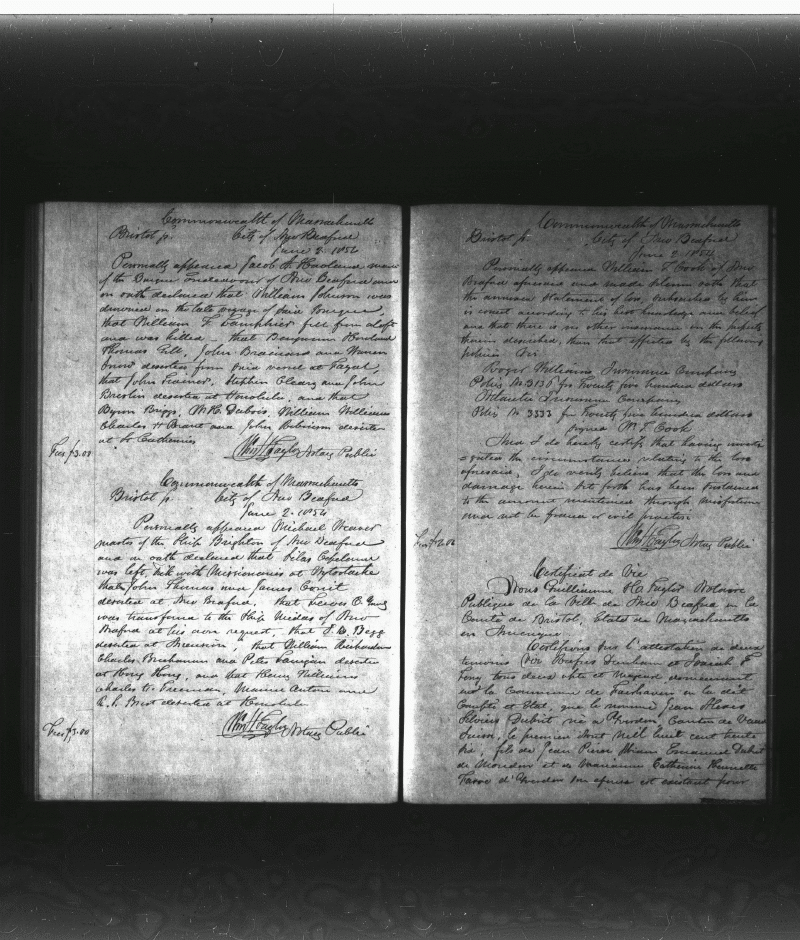 Commonwealth of Massachusetts
Bristol ss. City of New Bedford
June 2 1854
Personally appeared Jacob A Howland master
of the Barque Endeavour of New Bedford and
on oath declared that William Johnson was
drowned on the late voyage of said Barque,
that William F Lamphier fell from aloft
and was killed, that Benjamin Howland
Thomas Gill, John Brainard and Warren
Snow deserted from said vessel at Fayal,
that John Trainor, Stephen Cleary and John
Breslin deserted at Honolulu, and that
Byron Briggs, W. H. Dubois, William Williams
Charles H Brant and John Robinson deserted
at St Catherines
Fees $3.00 Wm H Taylor Notary Public
Commonwealth of Massachusetts
Bristol ss. City of New Bedford
June 2. 1854
Personally appeared Michael Weaver
master of the Ship Brighton of New Bedford
and on oath declared that Silas
was left sick with Missionaries at
that John Thomas and James
deserted at New Bedford, that C
was transferred to the Ship Midas of New
Bedford at his own request, that Begg
deserted at Ascension, that William Richardson
Charles Buchanan and Peter Lanigan deserted
at Hong Kong, and that Henry Williams
Charles Freeman, Antone and
deserted at Honolulu
Fees $3.00 Wm H Taylor Notary Public
Commonwealth of Massachusetts
Bristol ss. City of New Bedford
June 2 1854
Personally appeared William T. Cook of New
Bedford aforesaid and made solemn oath that
the annexed statement of loss, subscribed by him
is correct according to his best knowledge and belief
and that there is no other insurance on the property
therein described, than that effected by the following
policies viz
Roger Williams Insurance Company
Policy No 3136 for Twenty five hundred dollars
Atlantic Insurance Company
Policy No 3533 for Twenty five hundred dollars
signed W. T. Cook
And I do hereby certify that having investi-
=gated the circumstances relating to the loss
aforesaid, I do verily believe that the loss and
damage herein set forth has been sustained
to the amount mentioned through misfortune
and not by fraud or evil practice.
Wm H Taylor Notary Public
Certificat de Vie
Nous Guillaume H. Taylor Notaire
Publique de la Ville de New Bedford en la
Comté de Bristol, Etat de Massachusetts
en Amerique
Certifions sur l'attestation de deux
temoins Rufus Dunham et Josiah F
tous deux et demeurant
en la Commune de Fairhaven en la dit
Comté et Etat, que le nommé Jean
Dubrit, né a Moudon, Canton de Vaud
Suisse, le premier Aout mil huit cent trente
fils de Jean Pierre Emanuel Dubrit
de Moudon et de Marianne Catherine Henriette
d' est existant pour